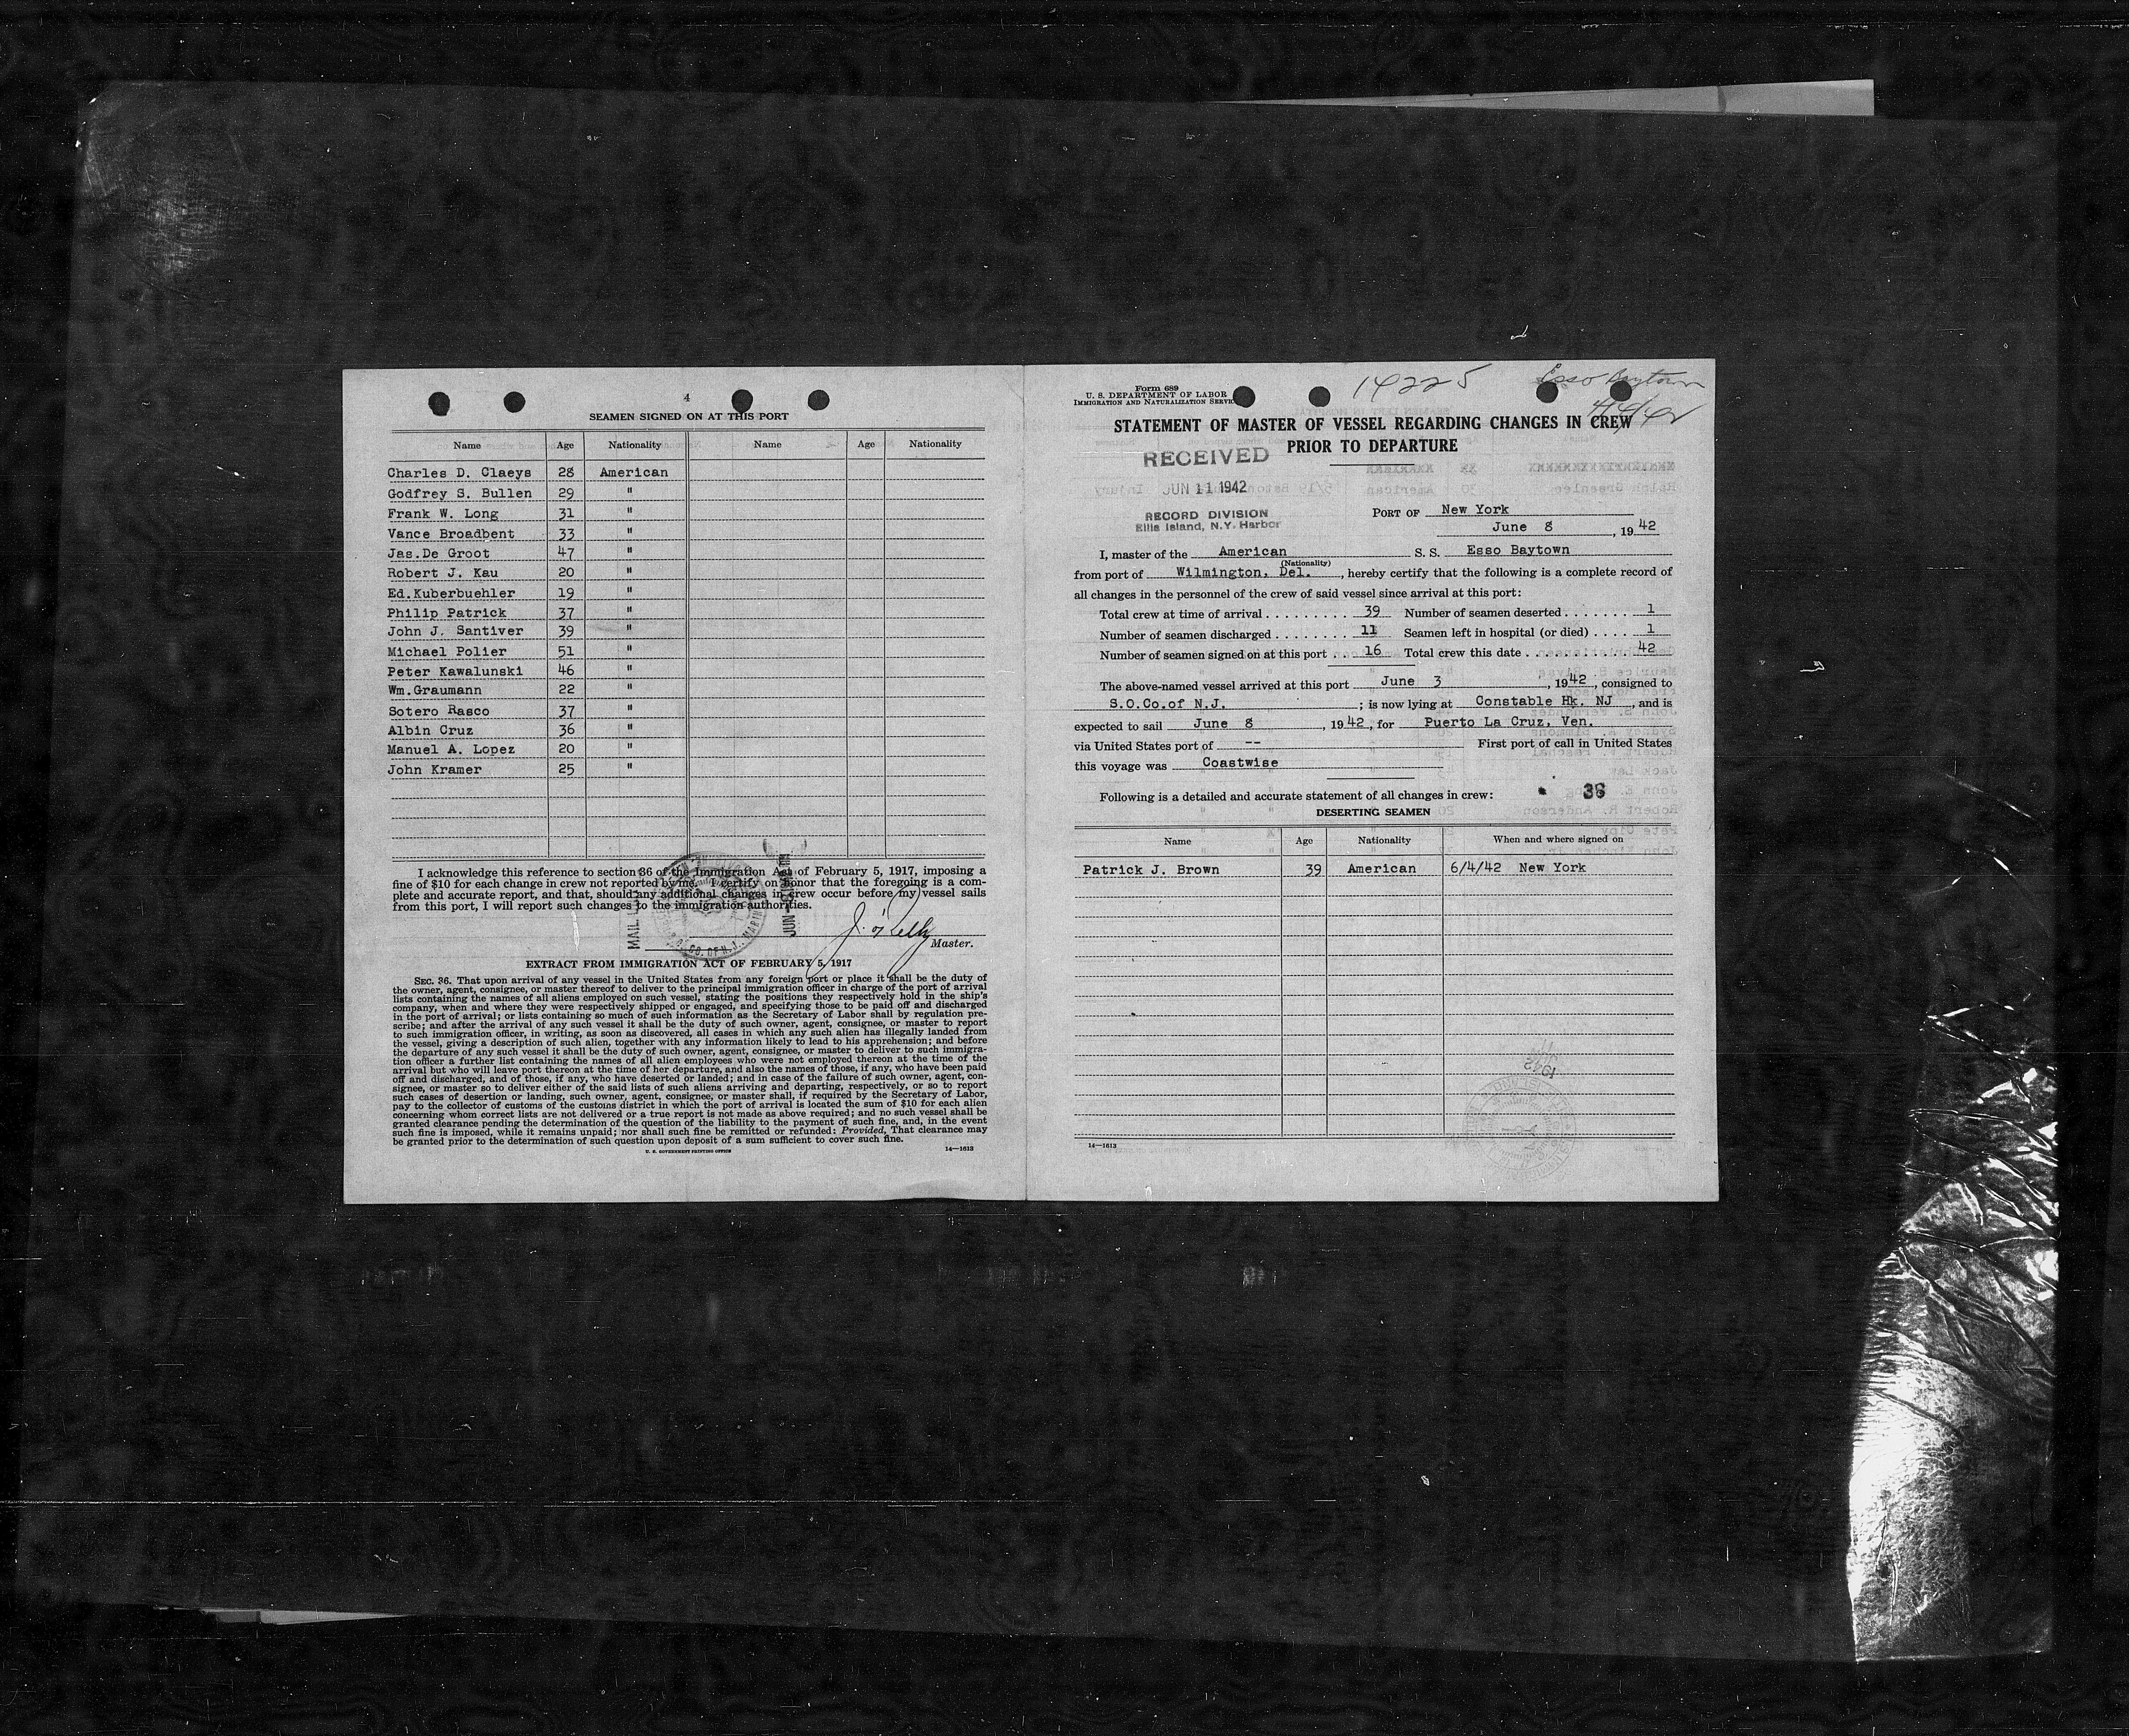 4
SEAMEN SIGNED ON AT THIS PORT
Name Age Nationality Name Age Nationality
Charles D. Claeys 28 American
Godfrey S. Bullen 29 "
Frank W. Long 31 "
Vance Broadbent 33 "
Jas.De Groot 47 "
Robert J. Kau 20 "
Ed.Kuberbuehler 19 "
Philip Patrick 37 "
John J. Santiver 39 "
Michael Polier 51 "
Peter Kawalunski 46 "
Wm.Graumann 22 "
Sotero Rasco 37 "
Albin Cruz 36 "
Manuel A. Lopez 20 "
John Kramer 25 "
I acknowledge this reference to section 36 of the Immigration Act of February 5, 1917, imposing a
fine of $10 for each change in crew not reported by me. I certify on honor that the foregoing is a com-
plete and accurate report, and that, should any additional changes in crew occur before my vessel sails
from this port, I will report such changes to the immigration authorities.
J. O'Kelly
Master.
EXTRACT FROM IMMIGRATION ACT OF FEBRUARY 5, 1917
SEC. 36. That upon arrival of any vessel in the United States from any foreign port or place it shall be the duty of
the owner, agent, consignee, or master thereof to deliver to the principal immigration officer in charge of the port of arrival
lists containing the names of all aliens employed on such vessel, stating the positions they respectively hold in the ship's
company, when and where they were respectively shipped or engaged, and specifying those to be paid off and discharged
in the port of arrival; or lists containing so much of such information as the Secretary of Labor shall by regulation pre-
scribe; and after the arrival of any such vessel it shall be the duty of such owner, agent, consignee, or master to report
to such immigration officer, in writing, as soon as discovered, all cases in which any such alien has illegally landed from
the vessel, giving a description of such alien, together with any information likely to lead to his apprehension; and before
the departure of any such vessel it shall be the duty of such owner, agent, consignee, or master to deliver to such immigra-
tion officer a further list containing the names of all alien employees who were not employed thereon at the time of the
arrival but who will leave port thereon at the time of her departure, and also the names of those, if any, who have been paid
off and discharged, and of those, if any, who have deserted or landed; and in case of the failure of such owner, agent, con-
signee, or master so to deliver either of the said lists of such aliens arriving and departing, respectively, or so to report
such cases of desertion or landing, such owner, agent, consignee, or master shall, if required by the Secretary of Labor,
pay to the collector of customs of the customs district in which the port of arrival is located the sum of $10 for each alien
concerning whom correct lists are not delivered or a true report is not made as above required; and no such vessel shall be
granted clearance pending the determination of the question of the liability to the payment of such fine, and, in the event
such fine is imposed, while it remains unpaid; nor shall such fine be remitted or refunded: Provided, That clearance may
be granted prior to the determination of such question upon deposit of a sum sufficient to cover such fine.
U. S. GOVERNMENT PRINTING OFFICE 14—1613
Form 689
U. S. DEPARTMENT OF LABOR
IMMIGRATION AND NATURALIZATION SERVICE
14225
Esso Baytown
STATEMENT OF MASTER OF VESSEL REGARDING CHANGES IN CREW
PRIOR TO DEPARTURE
RECEIVED
JUN 11 1942
RECORD DIVISION
Ellis Island, N.Y. Harbor
PORT OF New York
June 8, 1942
I, master of the American S. S. Esso Baytown
(Nationality)
from port of Wilmington, Del., hereby certify that the following is a complete record of
all changes in the personnel of the crew of said vessel since arrival at this port:
Total crew at time of arrival . . . . . . . . . 39 Number of seamen deserted . . . . . . . 1
Number of seamen discharged . . . . . . . . 11 Seamen left in hospital (or died) . . . . 1
Number of seamen signed on at this port . . 16 Total crew this date . . . . . . . . . . . 42
The above-named vessel arrived at this port June 3, 1942, consigned to
S.O.Co.of N.J. ; is now lying at Constable Hk, NJ, and is
expected to sail June 8, 1942, for Puerto La Cruz, Ven.
via United States port of -- First port of call in United States
this voyage was Coastwise
Following is a detailed and accurate statement of all changes in crew: 36
DESERTING SEAMEN
Name Age Nationality When and where signed on
Patrick J. Brown 39 American 6/4/42 New York
14—1613